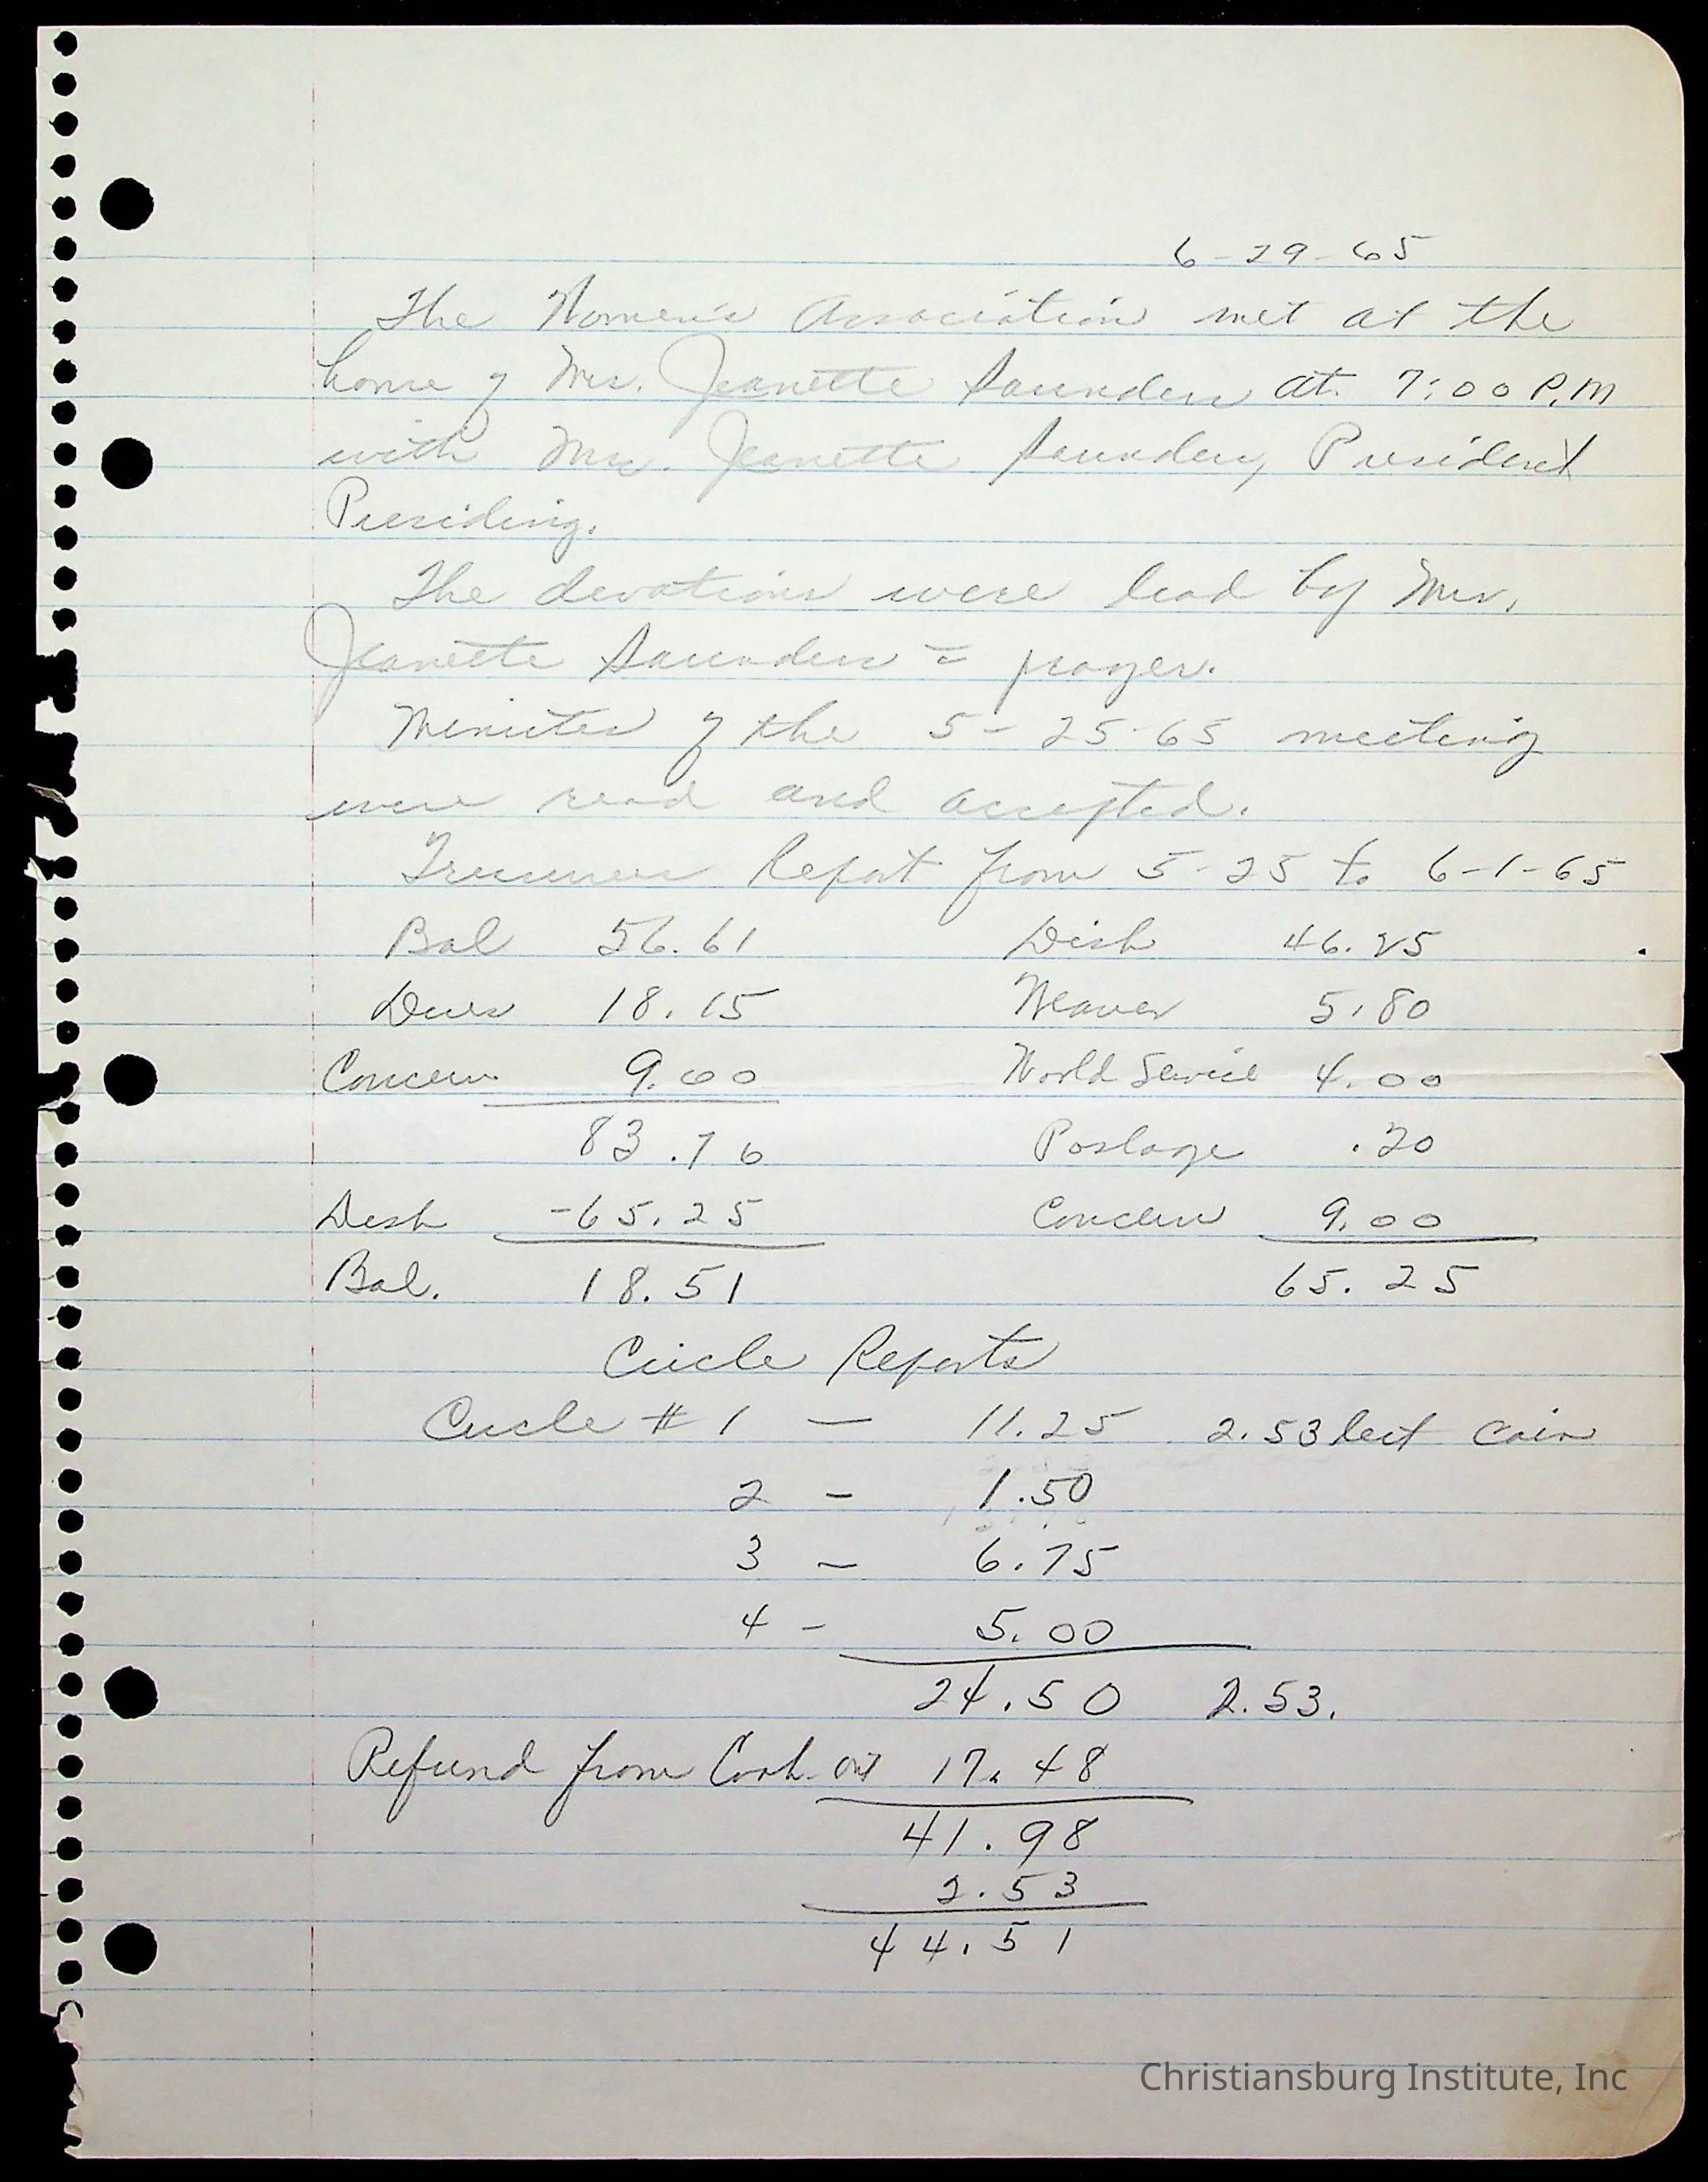 6-29-65
The Women's Association met at the
home of Mrs. Jeanette Saunders at 7:00 P.M
with Mrs. Jeanette Saunders, President
Presiding.
The devotions were lead by Mrs.
Jeanette Saunders = prayer.
Minutes of the 5-25-65 meeting
were read and accepted.
Report from 5-25 to 6-1-65
Bal 56.61 Disb 46.25
Dues 18.15 Weaver 5.80
Concern 9.00 World Service 4.00
83.76 Postage .20
Disb -65.25 Concern 9.00
Bal. 18.51 65.25
Circle Reports
Circle #1 — 11.25 2.53 Coin
2 - 1.50
3 - 6.75
4 - 5.00
24.50 2.53.
Refund from Cook-out 17.48
41.98
2.53
44.51
Christiansburg Institute, Inc